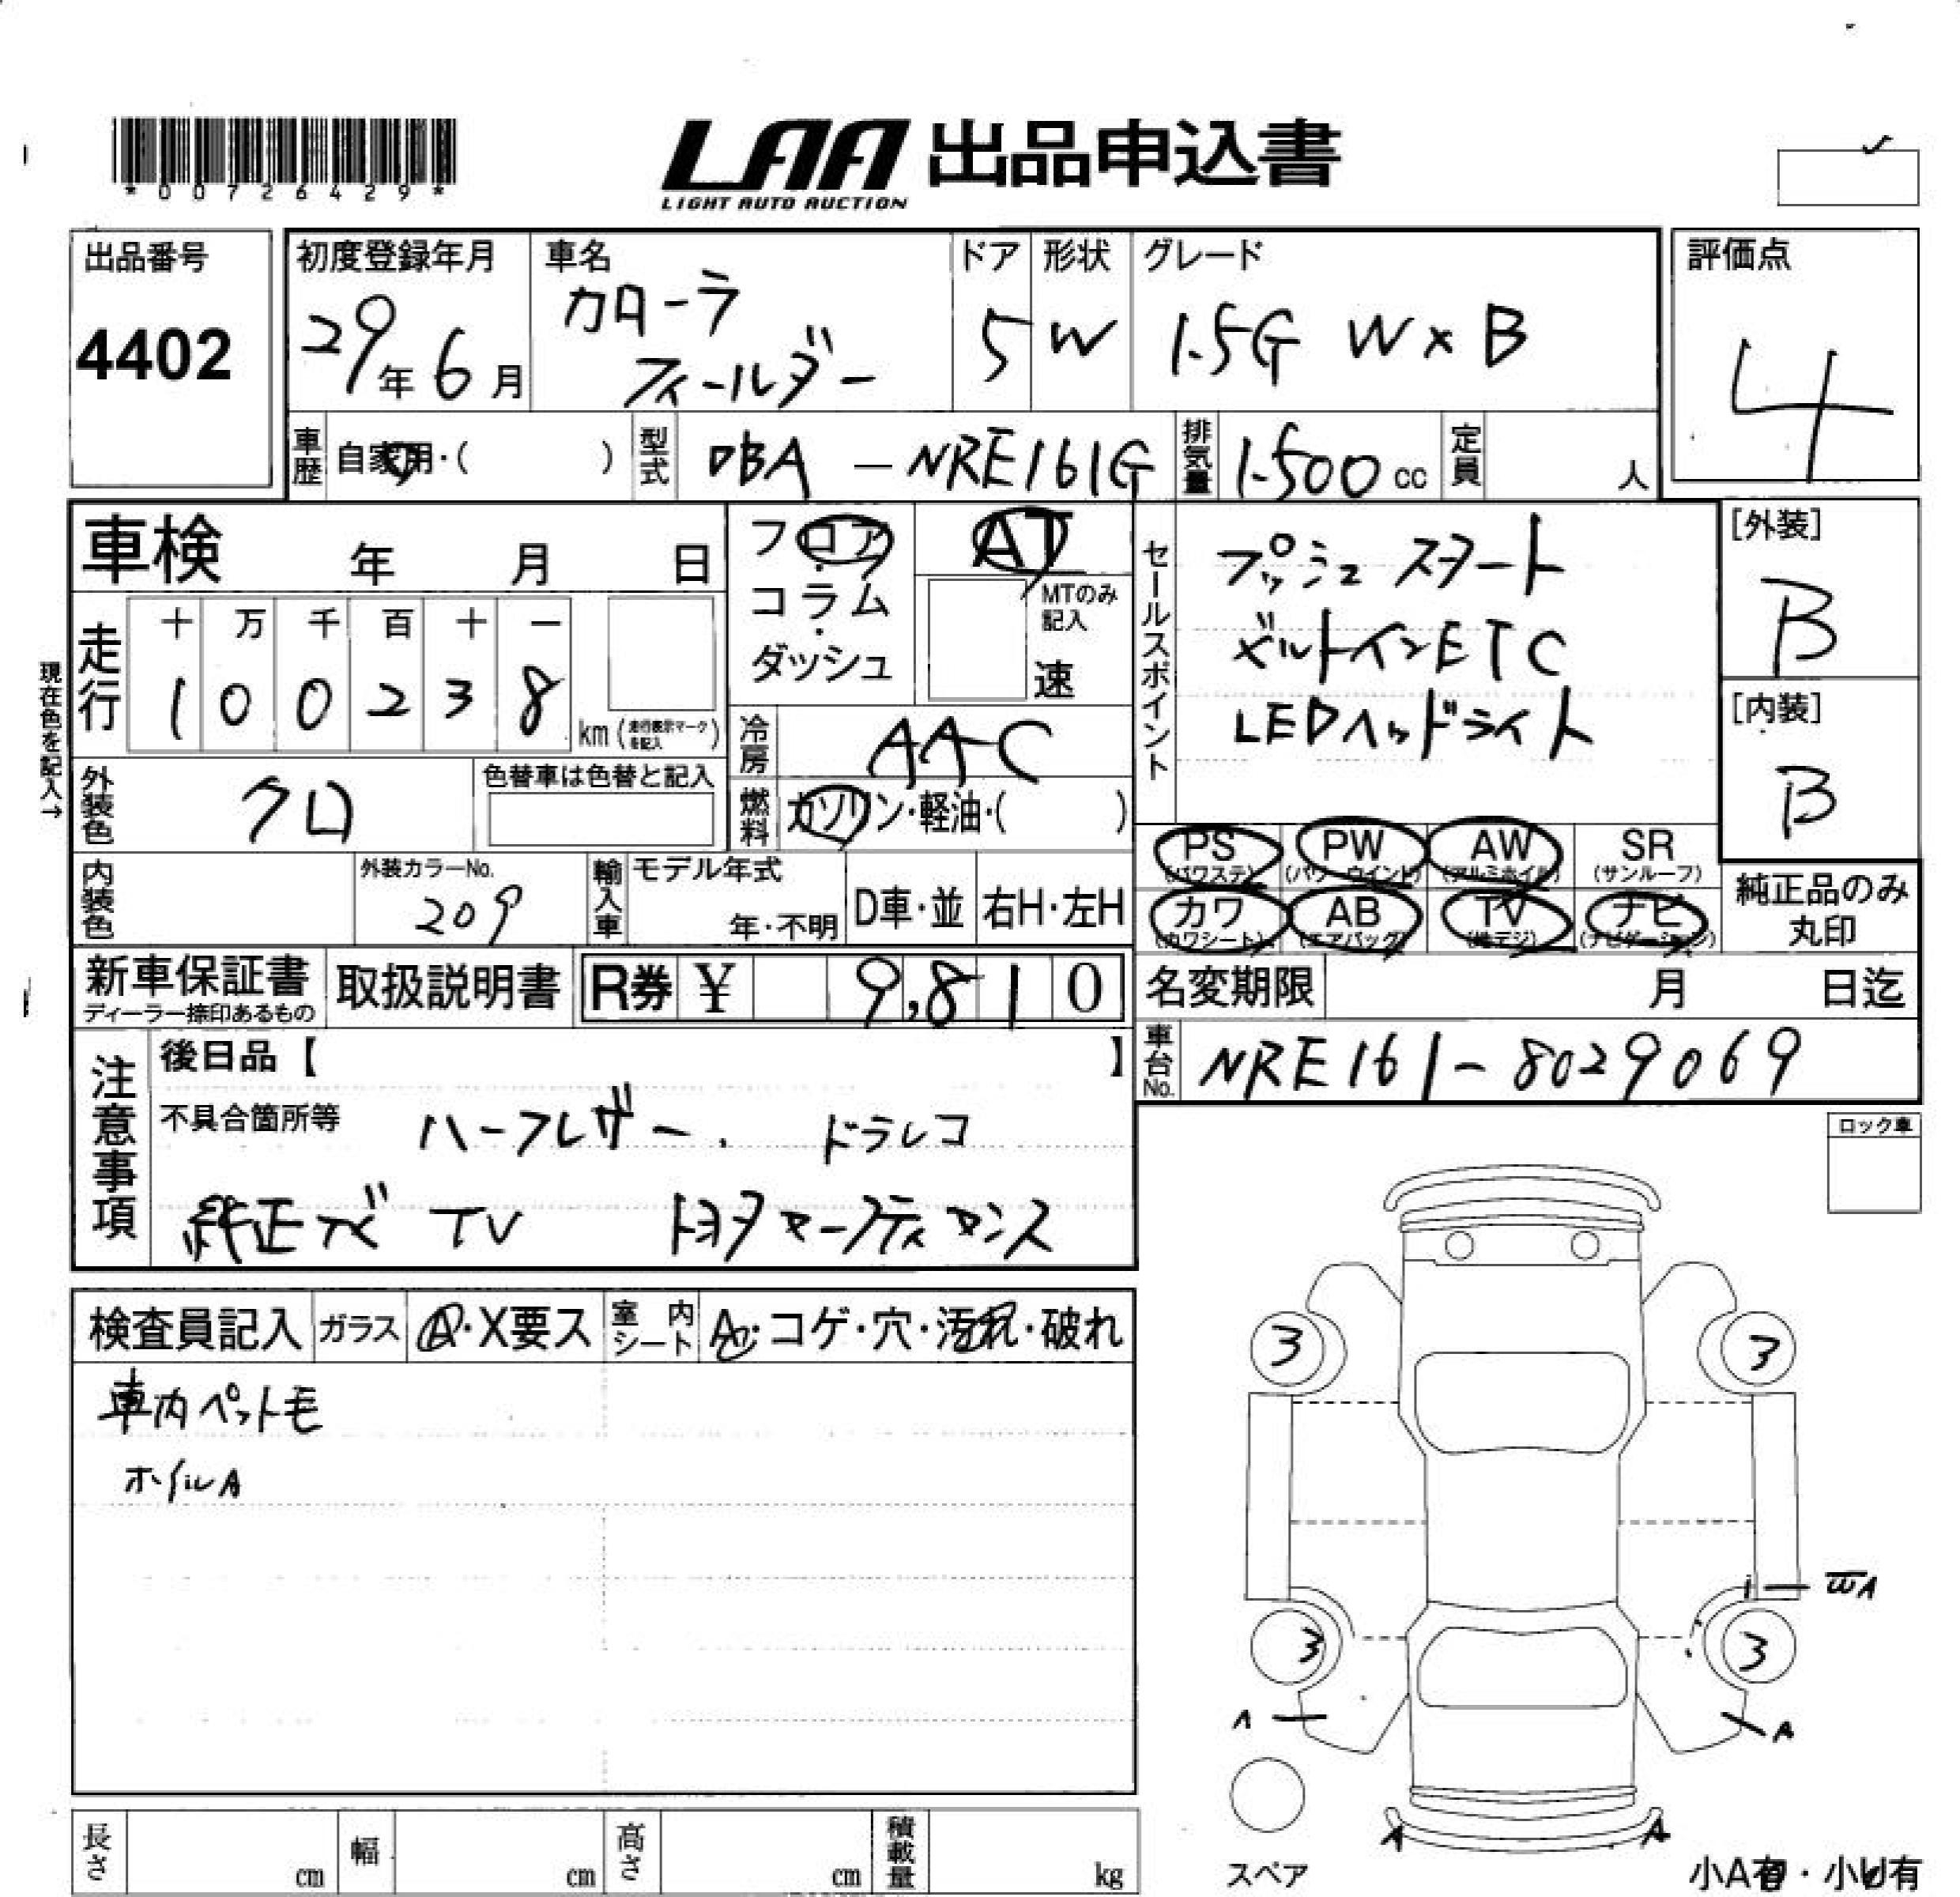 *00726429*
LAA 出品申込書
LIGHT AUTO AUCTION
出品番号
4402
初度登録年月
29年6月
車名
カローラ
フィールダー
ドア
5
形状
W
グレード
1.5G W×B
評価点
4
車歴
自家用・( )
型式
DBA-NRE161G
排気量
1.500cc
定員
人
車検 年 月 日
フロア
・
コラム
・
ダッシュ
AT
MTのみ
記入
速
セールスポイント
プッシュスタート
ビルトインETC
LEDヘッドライト
[外装]
B
[内装]
B
現在色を記入→
走行
十 万 千 百 十 一
1 0 0 2 3 8
km(走行表示マークを記入)
冷房
AAC
燃料
ガソリン・軽油・( )
外装色
クロ
色替車は色替と記入
内装色
外装カラーNo.
209
輸入車
モデル年式
年・不明
D車・並
右H・左H
PS
(パワステ)
PW
(パワーウインド)
AW
(アルミホイル)
SR
(サンルーフ)
カワ
(カワシート)
AB
(エアバッグ)
TV
(地デジ)
ナビ
(ナビゲーション)
純正品のみ
丸印
新車保証書
ディーラー捺印あるもの
取扱説明書
R券 ¥ 9,810
名変期限 月 日迄
車台No.
NRE161-8029069
注意事項
後日品【 】
不具合箇所等
ハーフレザー. ドラレコ
純正ナビ TV トヨタマークディマンス
ロック車
検査員記入
ガラス
A・X要ス
室内
シート
A・コゲ・穴・汚れ・破れ
車内ペット毛
ホイルA
3
3
3
3
A
A
A
A
スペア
小A有・小U有
長さ
cm
幅
cm
高さ
cm
積載量
kg